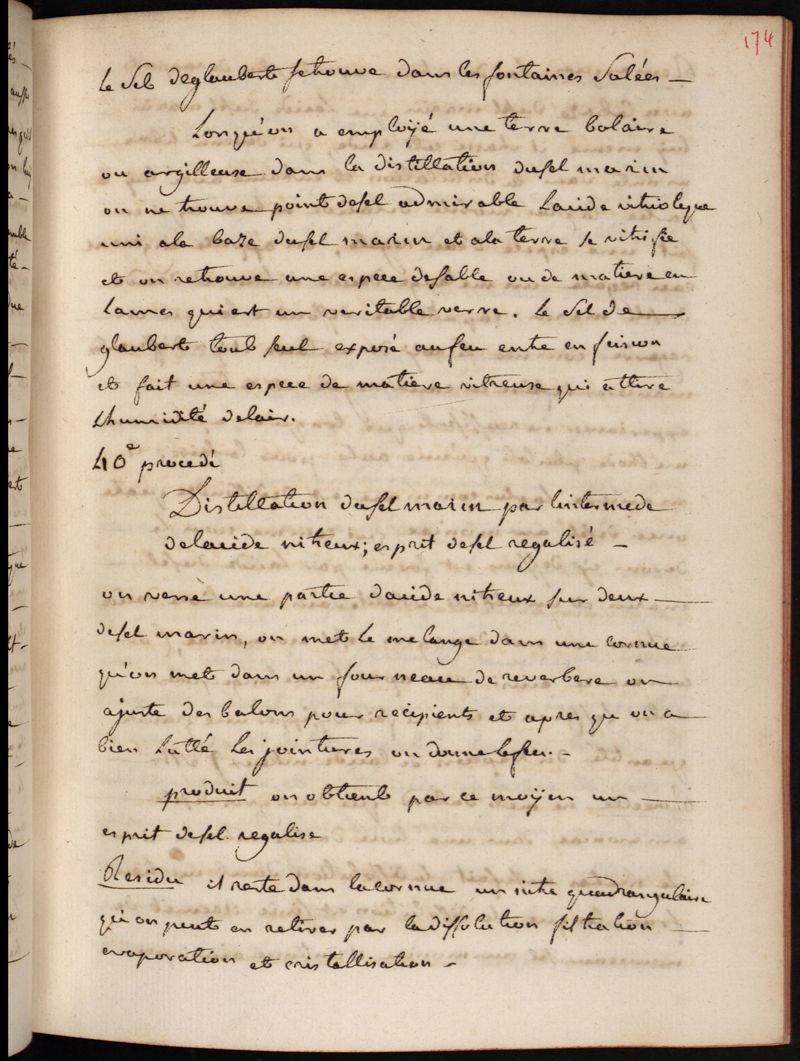 174
Le Sel deglauberts setrouve dans les fontaines Salées —
Lorsqu'on a employé une terre bolaire
ou argilleuse dans la distillation dusel marin
on ne trouve point desel admirable Lacide vitriolique
uni ala baze dusel marin et ala terre se vitrifie
et on retrouve une espece desable ou de matiere en
Lames qui est un veritable verre. Le Sel de
glauberts tout seul exposé aufeu entre en fusion
et fait une espece de matiere vitreuse qui attire
Lhumidité delair.
40e procedé
Distillation dusel marin par lintermede
delacide nitreux; esprit desel regalisé —
on verse une partie dacide nitreux sur deux
desel marin, on met le melange dans une cornue
qu'on met dans un fourneau de reverbere on
ajuste des balons pour recipients et apres qu'on a
bien Lutté Les jointures on donne lefeu. —
produit on obtient par ce moÿen un
esprit desel regalise
Residu il reste dans lacornue un nitre quadrangulaire
qu'on peut en retirer par ladissolution filtration
evaporation et cristallisation —